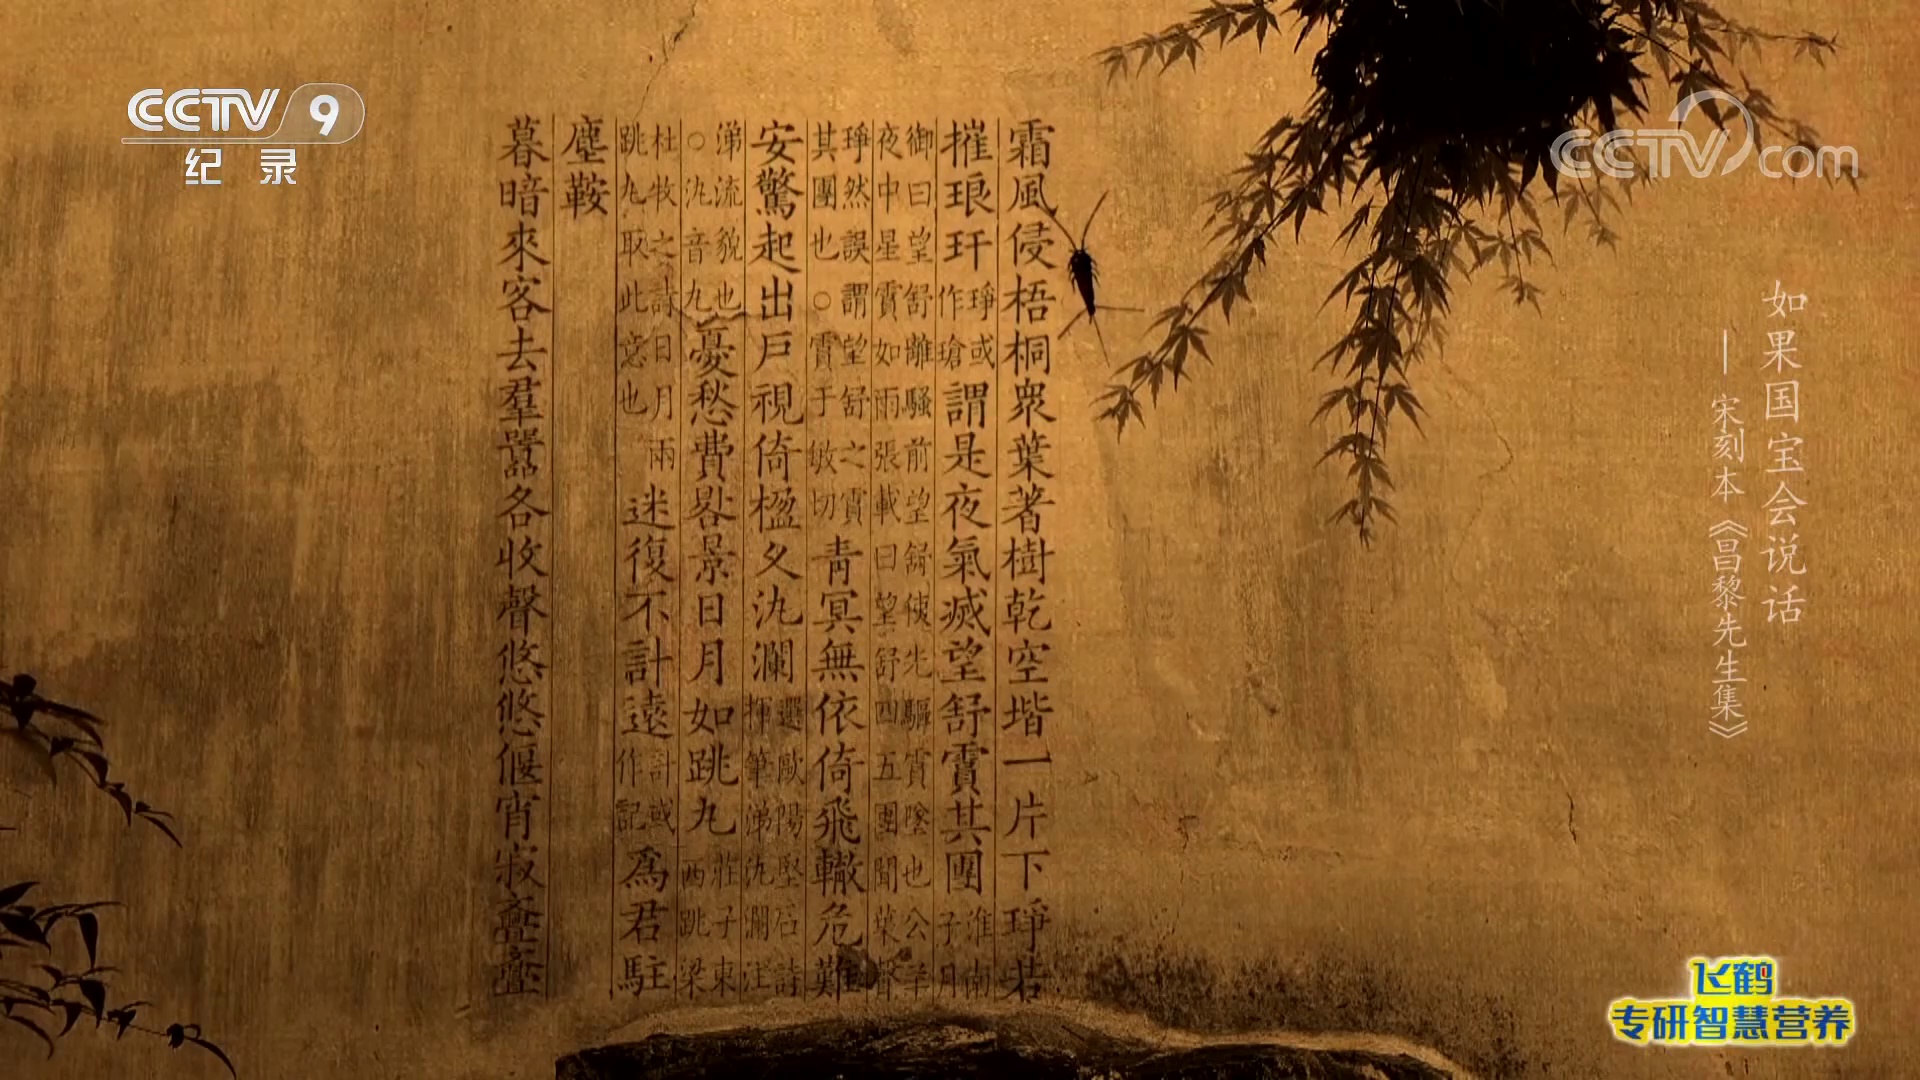 CCTV 9
纪录
CCTV.com
如果国宝会说话
——宋刻本《昌黎先生集》
霜風侵梧桐衆葉著樹乾空堦一片下琤若
摧琅玕琤或作瑲謂是夜氣滅望舒霣其團淮南子月
御曰望舒離騷前望舒使先驅霣墜也公羊
夜中星霣如雨張載曰望舒四五團聞葉聲
琤然誤謂望舒之霣其團也○霣于敏切青冥無依倚飛轍危難
安驚起出戶視倚楹久汍瀾選歐陽堅石詩揮筆涕汍瀾汪
涕流貌也○汍音丸憂愁費晷景日月如跳丸莊子東西跳梁
杜牧之詩日月兩跳丸取此意也迷復不計遠計或作記爲君駐
塵鞍
暮暗來客去羣囂各收聲悠悠偃宵寂亹亹
飞鹤
专研智慧营养